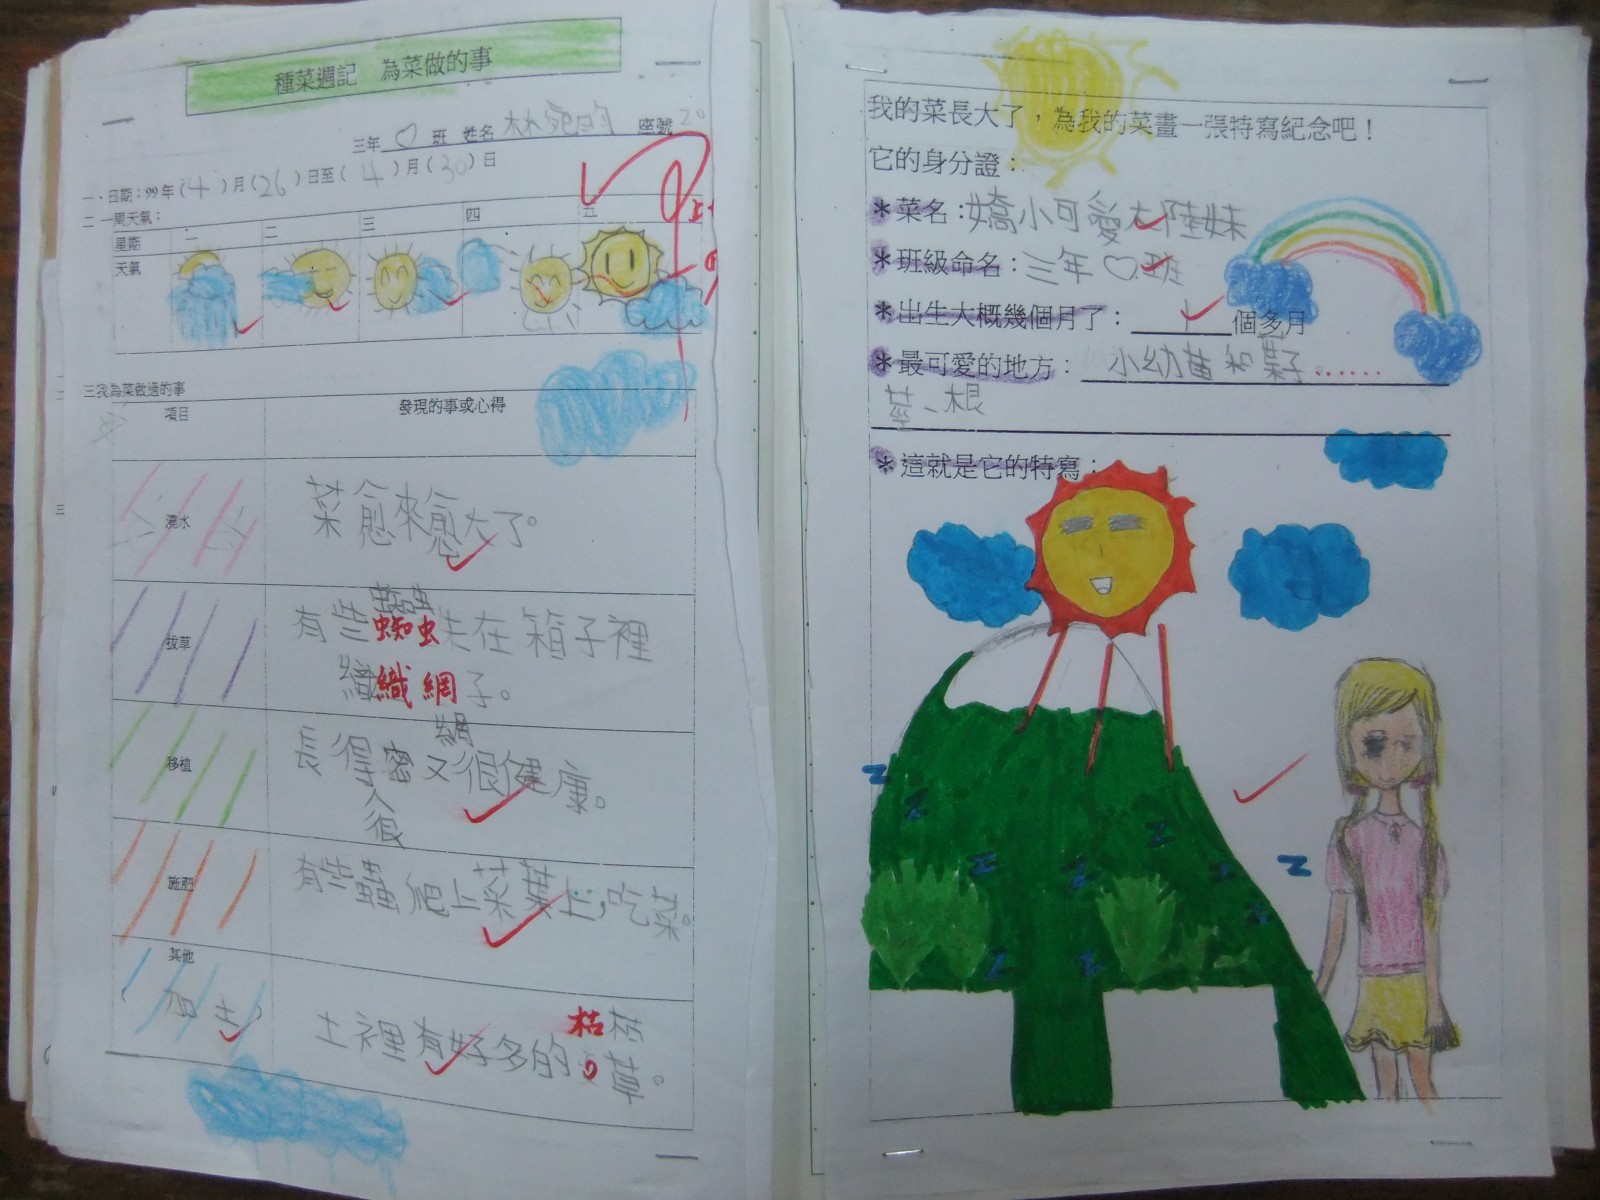 種菜週記　為菜做的事
三年 ♡ 班 姓名 林 座號 20
一、日期：99年(4)月(26)日至(4)月(30)日
二 一周天氣：
星期 一 二 三 四 五
天氣
三我為菜做過的事
項目 發現的事或心得
澆水 菜愈來愈大了。
蜘蛛
拔草 有些蜘蛛在箱子裡
織 織網子。
網
移植 長得密又很健康。
很
施肥 有些蟲爬上菜葉上，吃菜。
其他
加土。
枯 枯
土裡有好多的草。
我的菜長大了，為我的菜畫一張特寫紀念吧！
它的身分證：
*菜名：嬌小可愛大陸妹
*班級命名：三年♡班
*出生大概幾個月了：十個多月
*最可愛的地方：小幼苗和葉子……
莖、根
*這就是它的特寫：
z z z z z z z z z z